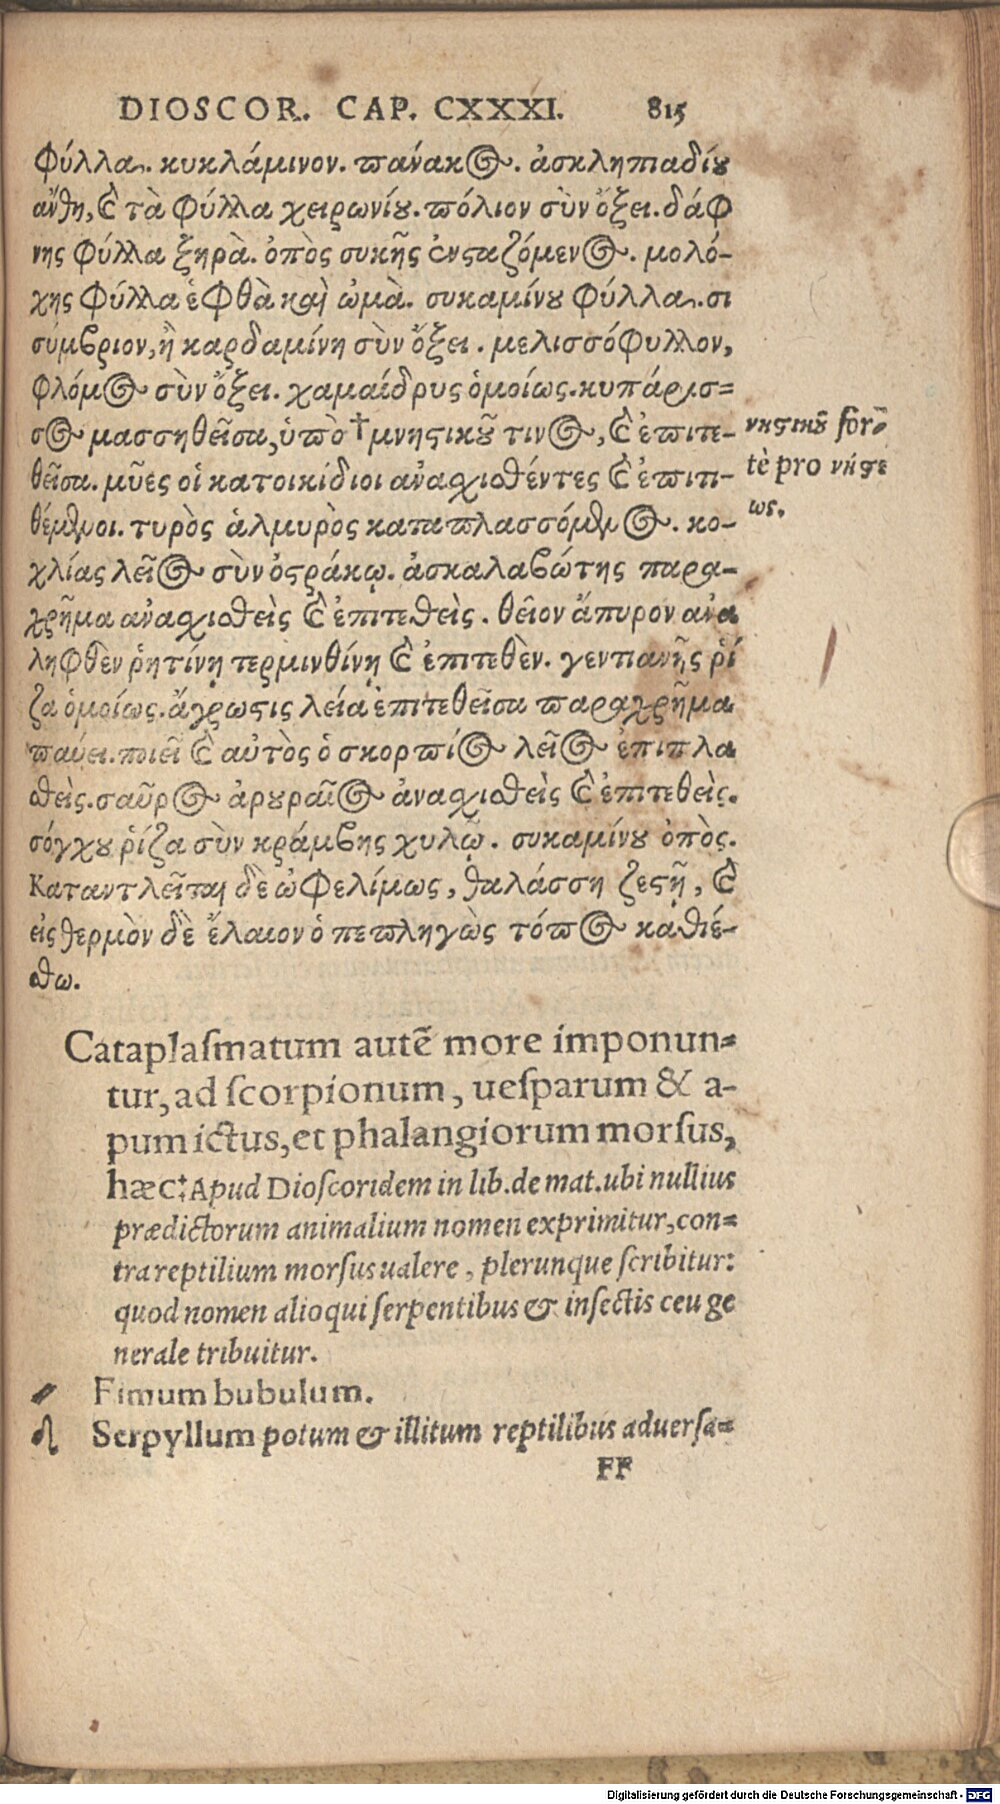 DIOSCOR. CAP. CXXXI. 815
φύλλα. κυκλάμινον. πάνακος. ἀσκληπιαδίου
ἄνθη, καὶ τὰ φύλλα χειρωνίου. πόλιον σὺν ὄξει. δάφ
νης φύλλα ξηρὰ. ὀπὸς συκῆς ἐνσταζόμενος. μολό-
χης φύλλα ἑφθὰ καὶ ὠμὰ. συκαμίνου φύλλα. σι
σύμβριον, ἢ καρδαμίνη σὺν ὄξει. μελισσόφυλλον,
φλόμος σὺν ὄξει. χαμαίδρυς ὁμοίως. κυπάρισ=
σος μασσηθεῖσα, ὑπὸ †μνηστικοῦ τινος, καὶ ἐπιτε-
θεῖσα. μῦες οἱ κατοικίδιοι ἀνασχισθέντες καὶ ἐπιτι-
θέμενοι. τυρὸς ἁλμυρὸς καταπλασσόμενος. κο-
χλίας λεῖος σὺν ὀστράκῳ. ἀσκαλαβώτης παρα-
χρῆμα ἀνασχισθεὶς καὶ ἐπιτεθεὶς. θεῖον ἄπυρον ἀνα
ληφθὲν ῥητίνῃ τερμινθίνῃ καὶ ἐπιτεθὲν. γεντιανῆς ῥί
ζα ὁμοίως. ἄγρωστις λεία ἐπιτεθεῖσα παραχρῆμα
παύει. ποιεῖ καὶ αὐτὸς ὁ σκορπίος λεῖος ἐπιπλα
σθεὶς. σαῦρος ἀρουραῖος ἀνασχισθεὶς καὶ ἐπιτεθεὶς.
σόγχου ῥίζα σὺν κράμβης χυλῷ. συκαμίνου ὀπὸς.
Καταντλεῖται δὲ ὠφελίμως, θαλάσσῃ ζεστῇ, καὶ
εἰς θερμὸν δὲ ἔλαιον ὁ πεπληγὼς τόπος καθιέ-
σθω.
νηστικοῦ for=
tè pro νήστε
ως.
Cataplasmatum autẽ more imponun=
tur, ad scorpionum, uesparum & a-
pum ictus, et phalangiorum morsus,
hæc: Apud Dioscoridem in lib. de mat. ubi nullius
prædictorum animalium nomen exprimitur, con=
tra reptilium morsus ualere, plerunque scribitur:
quod nomen alioqui serpentibus & insectis ceu ge
nerale tribuitur.
Fimum bubulum.
Serpyllum potum & illitum reptilibus aduersa=
FF
Digitalisierung gefördert durch die Deutsche Forschungsgemeinschaft - DFG